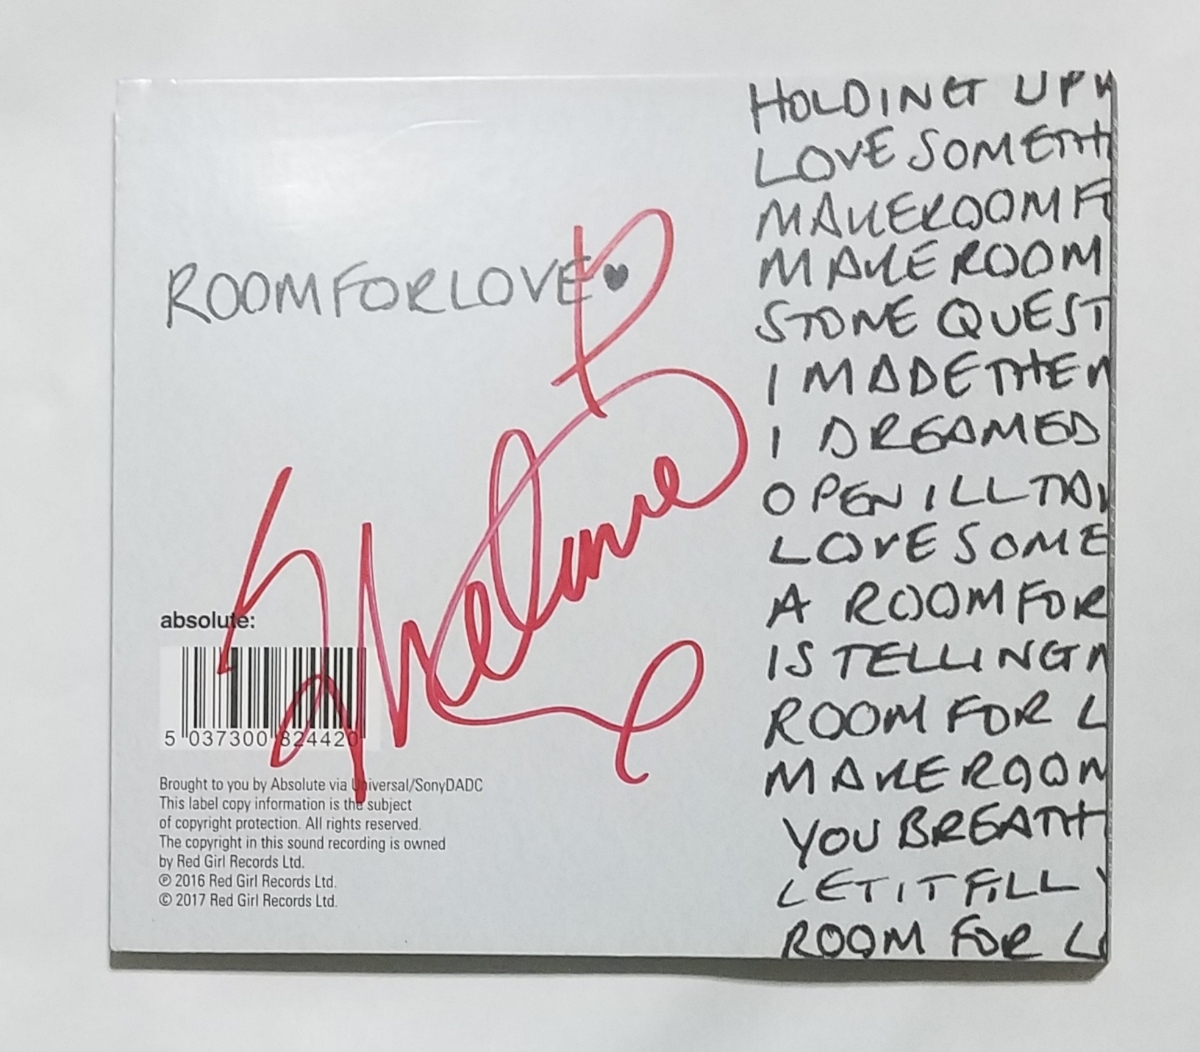 ROOM FOR LOVE♥
Melanie
absolute:
5 037300 824420
Brought to you by Absolute via Universal/SonyDADC
This label copy information is the subject
of copyright protection. All rights reserved.
The copyright in this sound recording is owned
by Red Girl Records Ltd.
℗ 2016 Red Girl Records Ltd.
© 2017 Red Girl Records Ltd.
HOLDING UP
LOVE SOMETH
MAKE ROOM F
MAKE ROOM
STONE QUEST
I MADE THE
I DREAMED
OPEN ILL
LOVE SOME
A ROOM FOR
IS TELLING
ROOM FOR L
MAKE ROOM
YOU BREATH
LET IT FILL
ROOM FOR LO